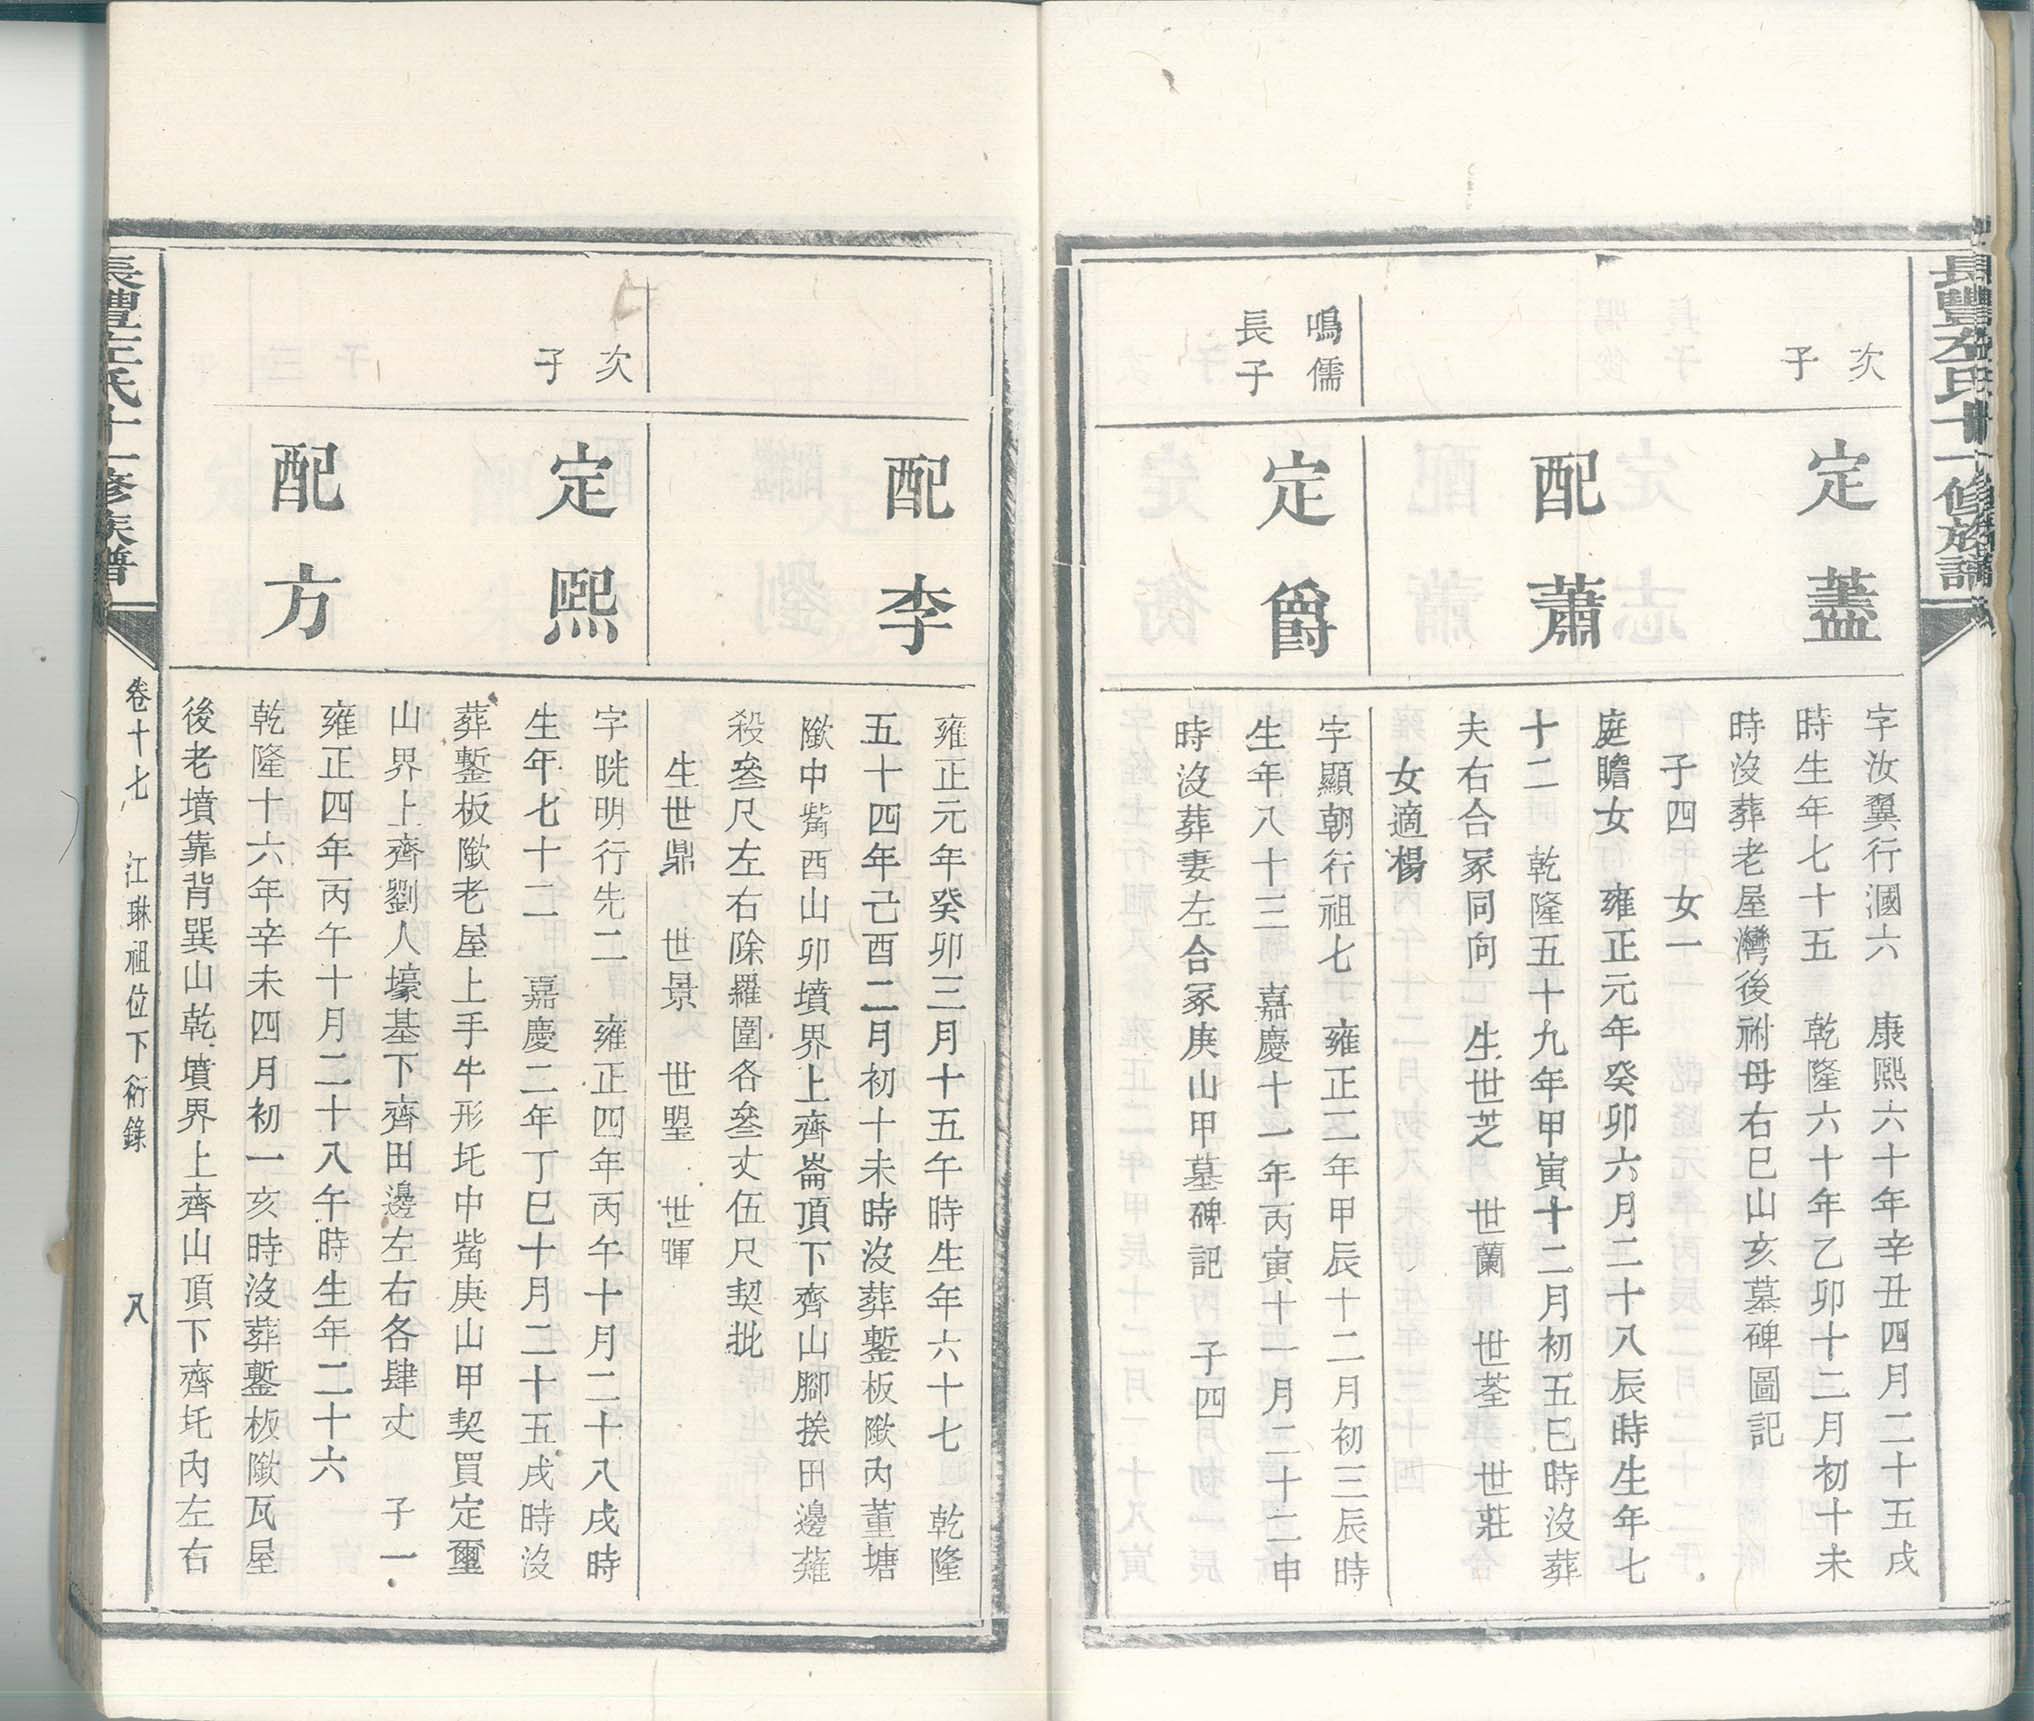 長豐左氏十一修族譜
次
子
定藎
字汝翼行漍六　康熙六十年辛丑四月二十五戌
時生年七十五　乾隆六十年乙卯十二月初十未
時沒葬老屋灣後祔母右巳山亥墓碑圖記
子四　女一
配蕭
庭瞻女　雍正元年癸卯六月二十八辰時生年七
十二　乾隆五十九年甲寅十二月初五巳時沒葬
夫右合冢同向　生世芝　世蘭　世荃　世莊
女適楊
鳴儒
長子
定爵
字顯朝行祖七　雍正二年甲辰十二月初三辰時
生年八十三　嘉慶十一年丙寅十一月二十二申
時沒葬妻左合冢庚山甲墓碑記　子四
配李
雍正元年癸卯三月十五午時生年六十七　乾隆
五十四年己酉二月初十未時沒葬鏨板隞內董塘
隞中嘴酉山卯墳界上齊崙頂下齊山腳挨田邊薤
殺叄尺左右除羅圍各叄丈伍尺契批
生世鼎　世景　世瞾　世暉
次
子
定熙
字晄明行先二　雍正四年丙午十月二十八戌時
生年七十二　嘉慶二年丁巳十月二十五戌時沒
葬鏨板隞老屋上手牛形圫中嘴庚山甲契買定璽
山界上齊劉人壕基下齊田邊左右各肆丈　子一
配方
雍正四年丙午十月二十八午時生年二十六
乾隆十六年辛未四月初一亥時沒葬鏨板隞瓦屋
後老墳靠背巽山乾墳界上齊山頂下齊圫內左右
長豐左氏十一修族譜
卷十七　江琳祖位下衍錄　八